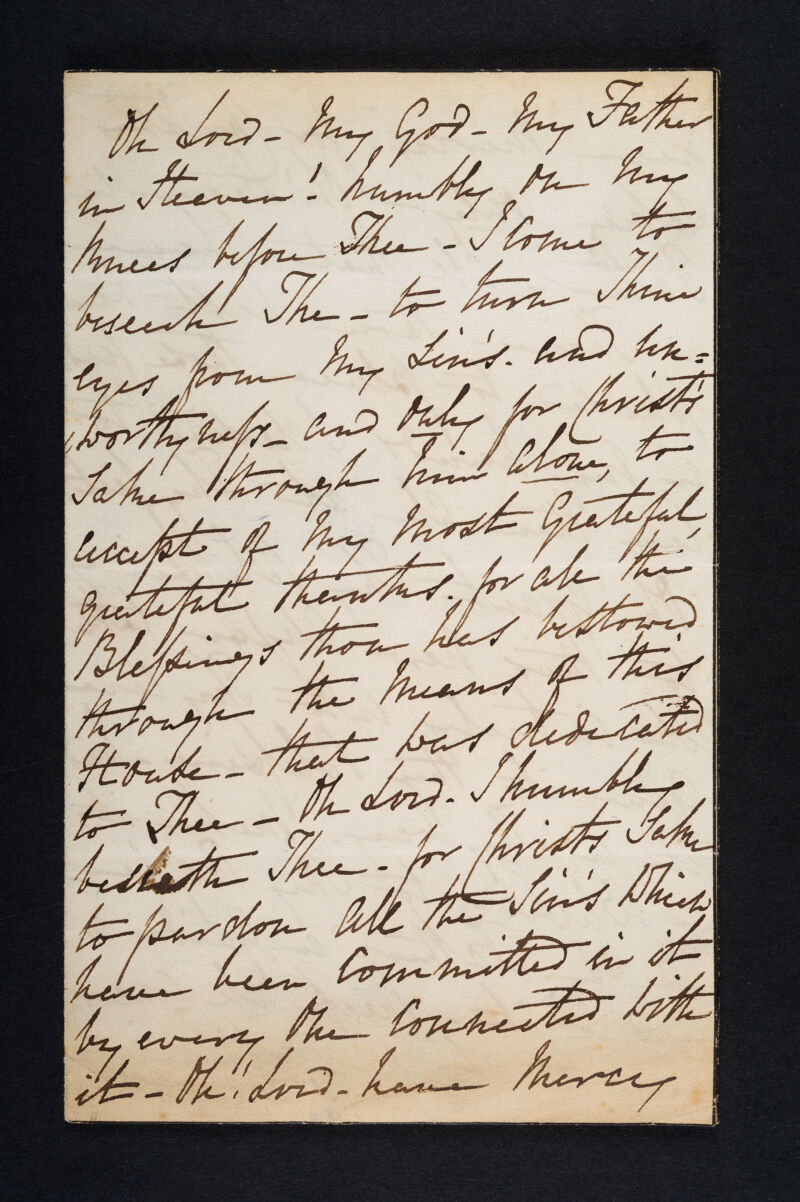 Oh Lord - My God - My Father
in Heaven! - humbly on my
knees before Thee - I come to
beseech The - to turn Thine
eyes from My Sin's - and un=
worthyness - and only for Christ's
Sake through him alone, to
accept of My Most Grateful,
grateful thanks - for all the
Blessings thou has bestowed
through the Means of this
House - that was dedicated
to Thee - Oh Lord - I humbly
Thee - for Christs Sake
to pardon all the Sin's Which
have been Committed in it
by every One Connected With
it - Oh! Lord - have Mercy